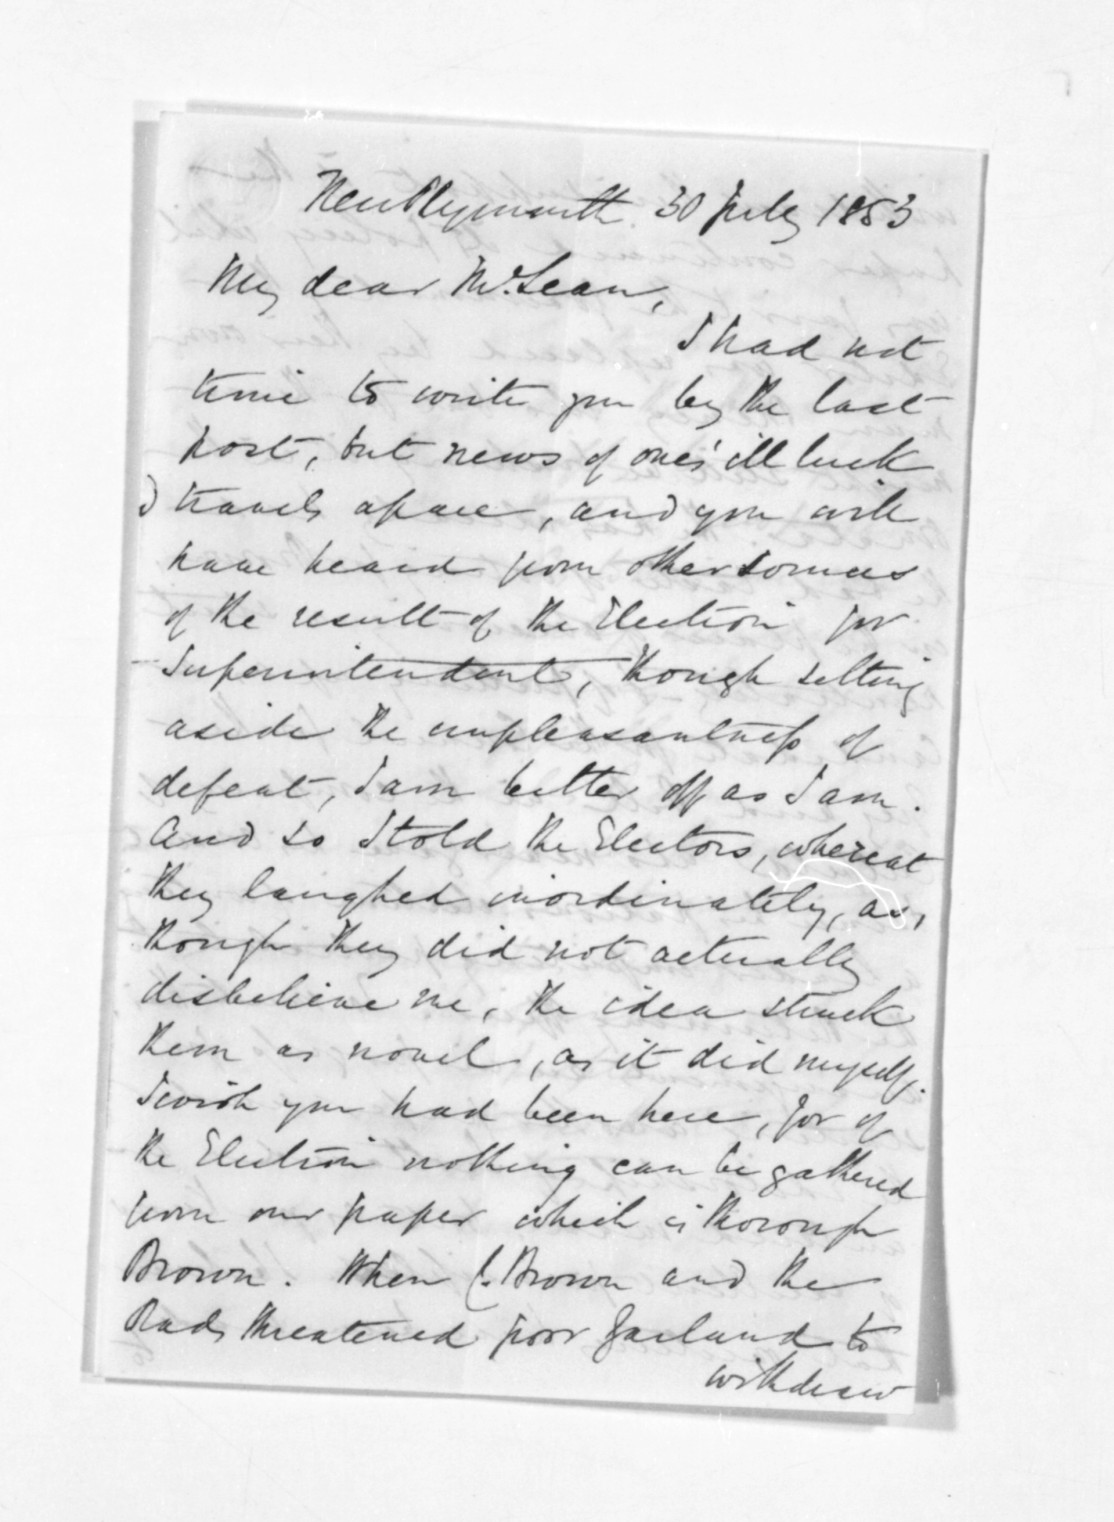 New Plymouth. 30 July 1853
My dear McLean,
I had not
time to write you by the last
post, but news of ones' ill luck
travels apace, and you will
have heard from other sources
of the result of the Election for
Superintendent, though setting
aside the unpleasantness of
defeat, I am better off as I am.
And so I told the Electors, whereat
they laughed inordinately, as,
though they did not actually
disbelieve me, the idea struck
them as novel, as it did myself.
I wish you had been here, for of
the Election nothing can be gathered
from our paper which is thorough
Brown. When C. Brown and the
Rads threatened poor Garland to
withdraw